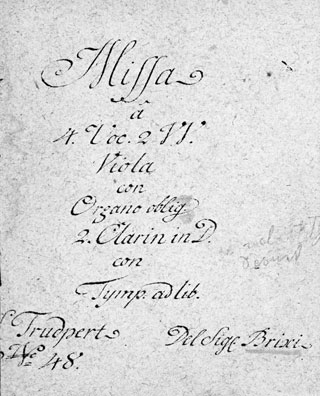 Missa
â
4. Voc. 2 VV.
Viola
con
Organo oblig
2. Clarin in D.
con
Tymp. ad lib.
Trudpert
No. 48.
Del Sige Brixi